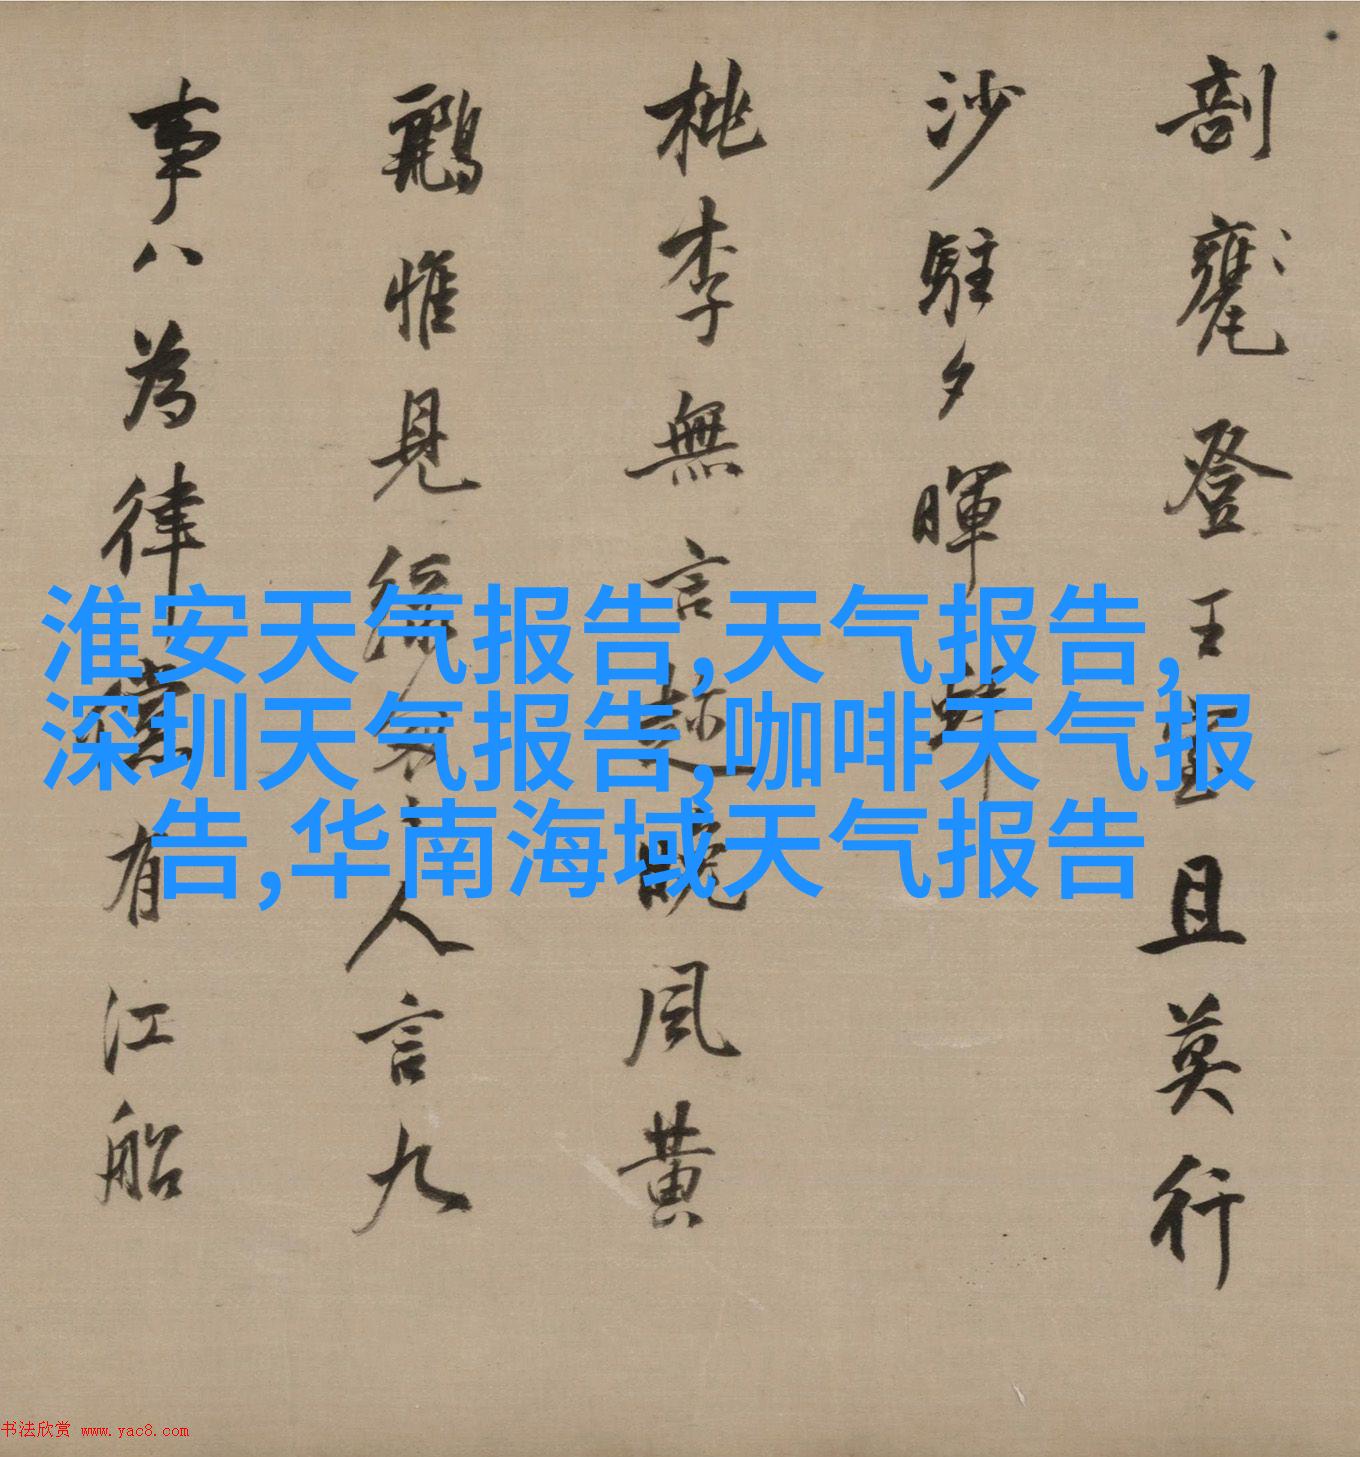 剖甕登王且莫行
沙駐夕暉
桃李無言晚風黃
鸝惟見人言九
事八為律儻有江船
淮安天气报告,天气报告,
深圳天气报告,咖啡天气报
告,华南海域天气报告
书法欣赏 www.yac8.com